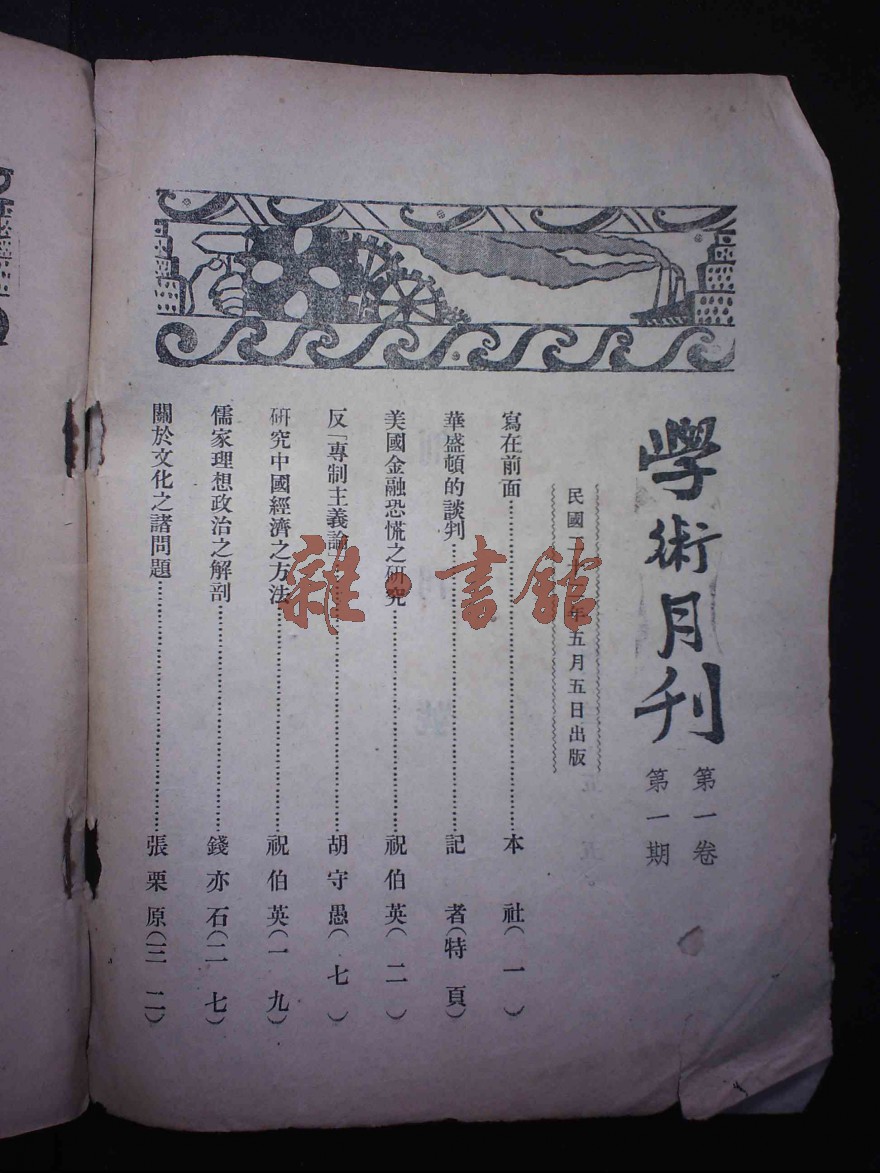 學術月刊
第一卷
第一期
民國二十二年五月五日出版
寫在前面……本社（一）
華盛頓的談判……記者（特頁）
美國金融恐慌之研究……祝伯英（二）
反「專制主義論」……胡守愚（七）
研究中國經濟之方法……祝伯英（一九）
儒家理想政治之解剖……錢亦石（二七）
關於文化之諸問題……張栗原（三二）
雜·書館